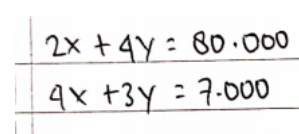 2x + 4y = 80.000
4x + 3y = 7.000